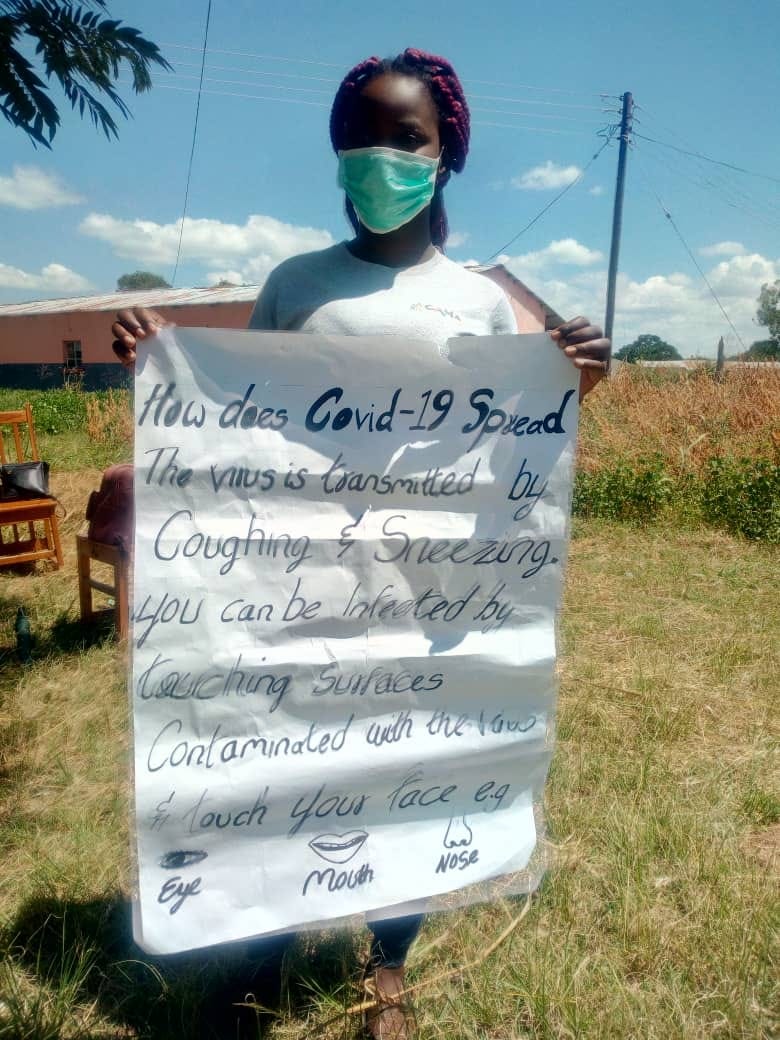 How does Covid-19 Spread
The virus is transmitted by
Coughing & Sneezing.
You can be Infected by
touching Surfaces
Contaminated with the Virus
& touch your face e.g
Eye
Mouth
Nose